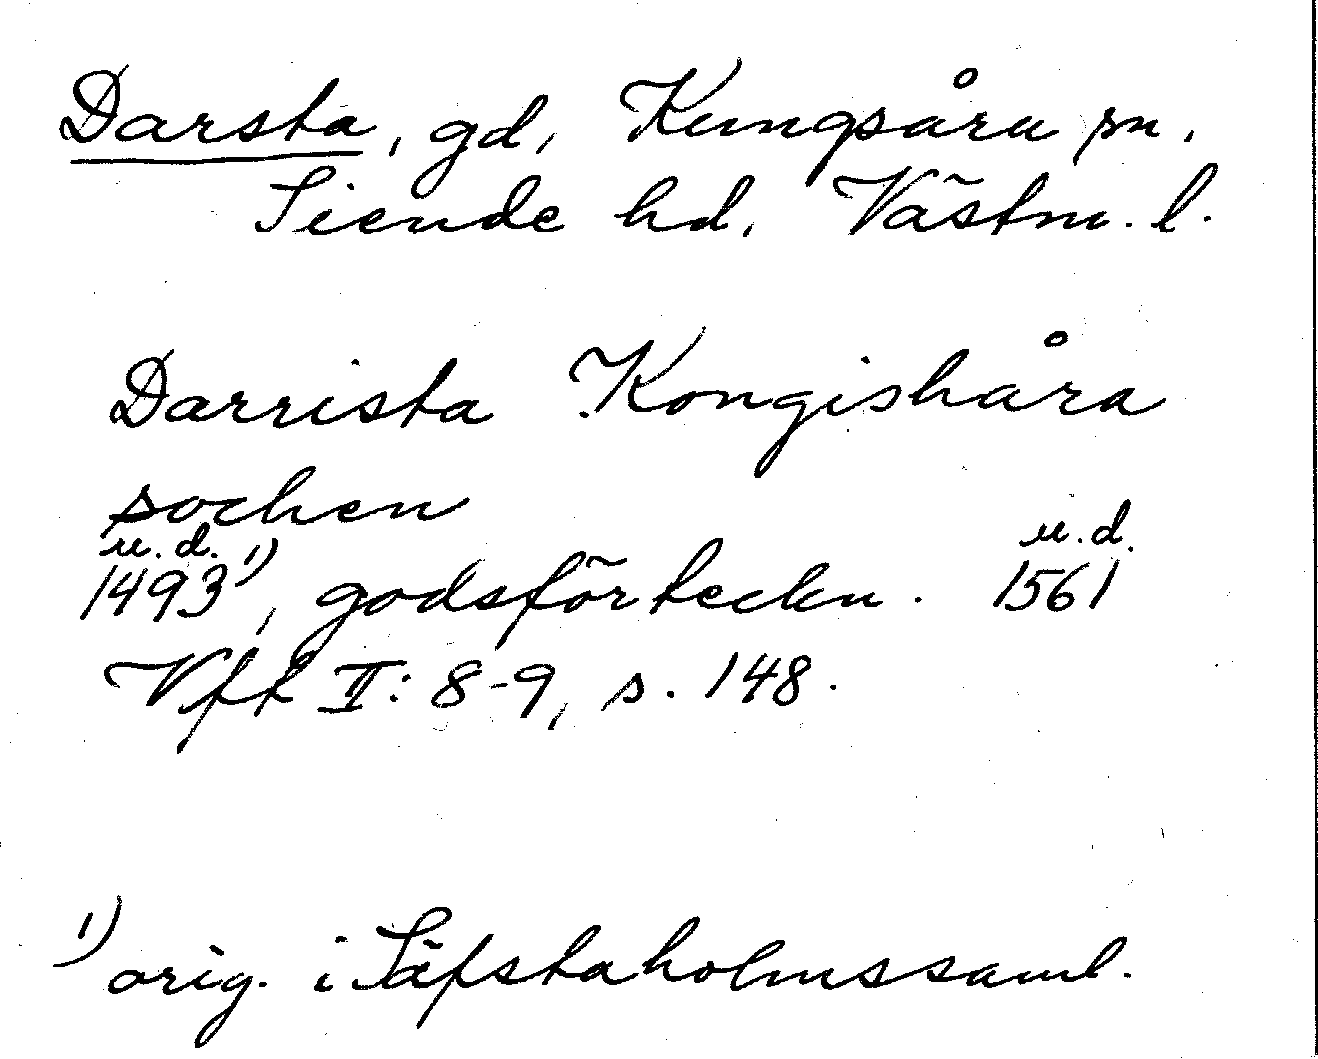 Darsta, gd, Kungsåra sn,
Siende hd, Västm. l.
Darrista Kongishåra
sochen
u.d. u.d.
1493¹⁾, godsförteckn. 1561
Vfk II: 8-9, s. 148.
¹⁾ orig. i Säfstaholmssaml.